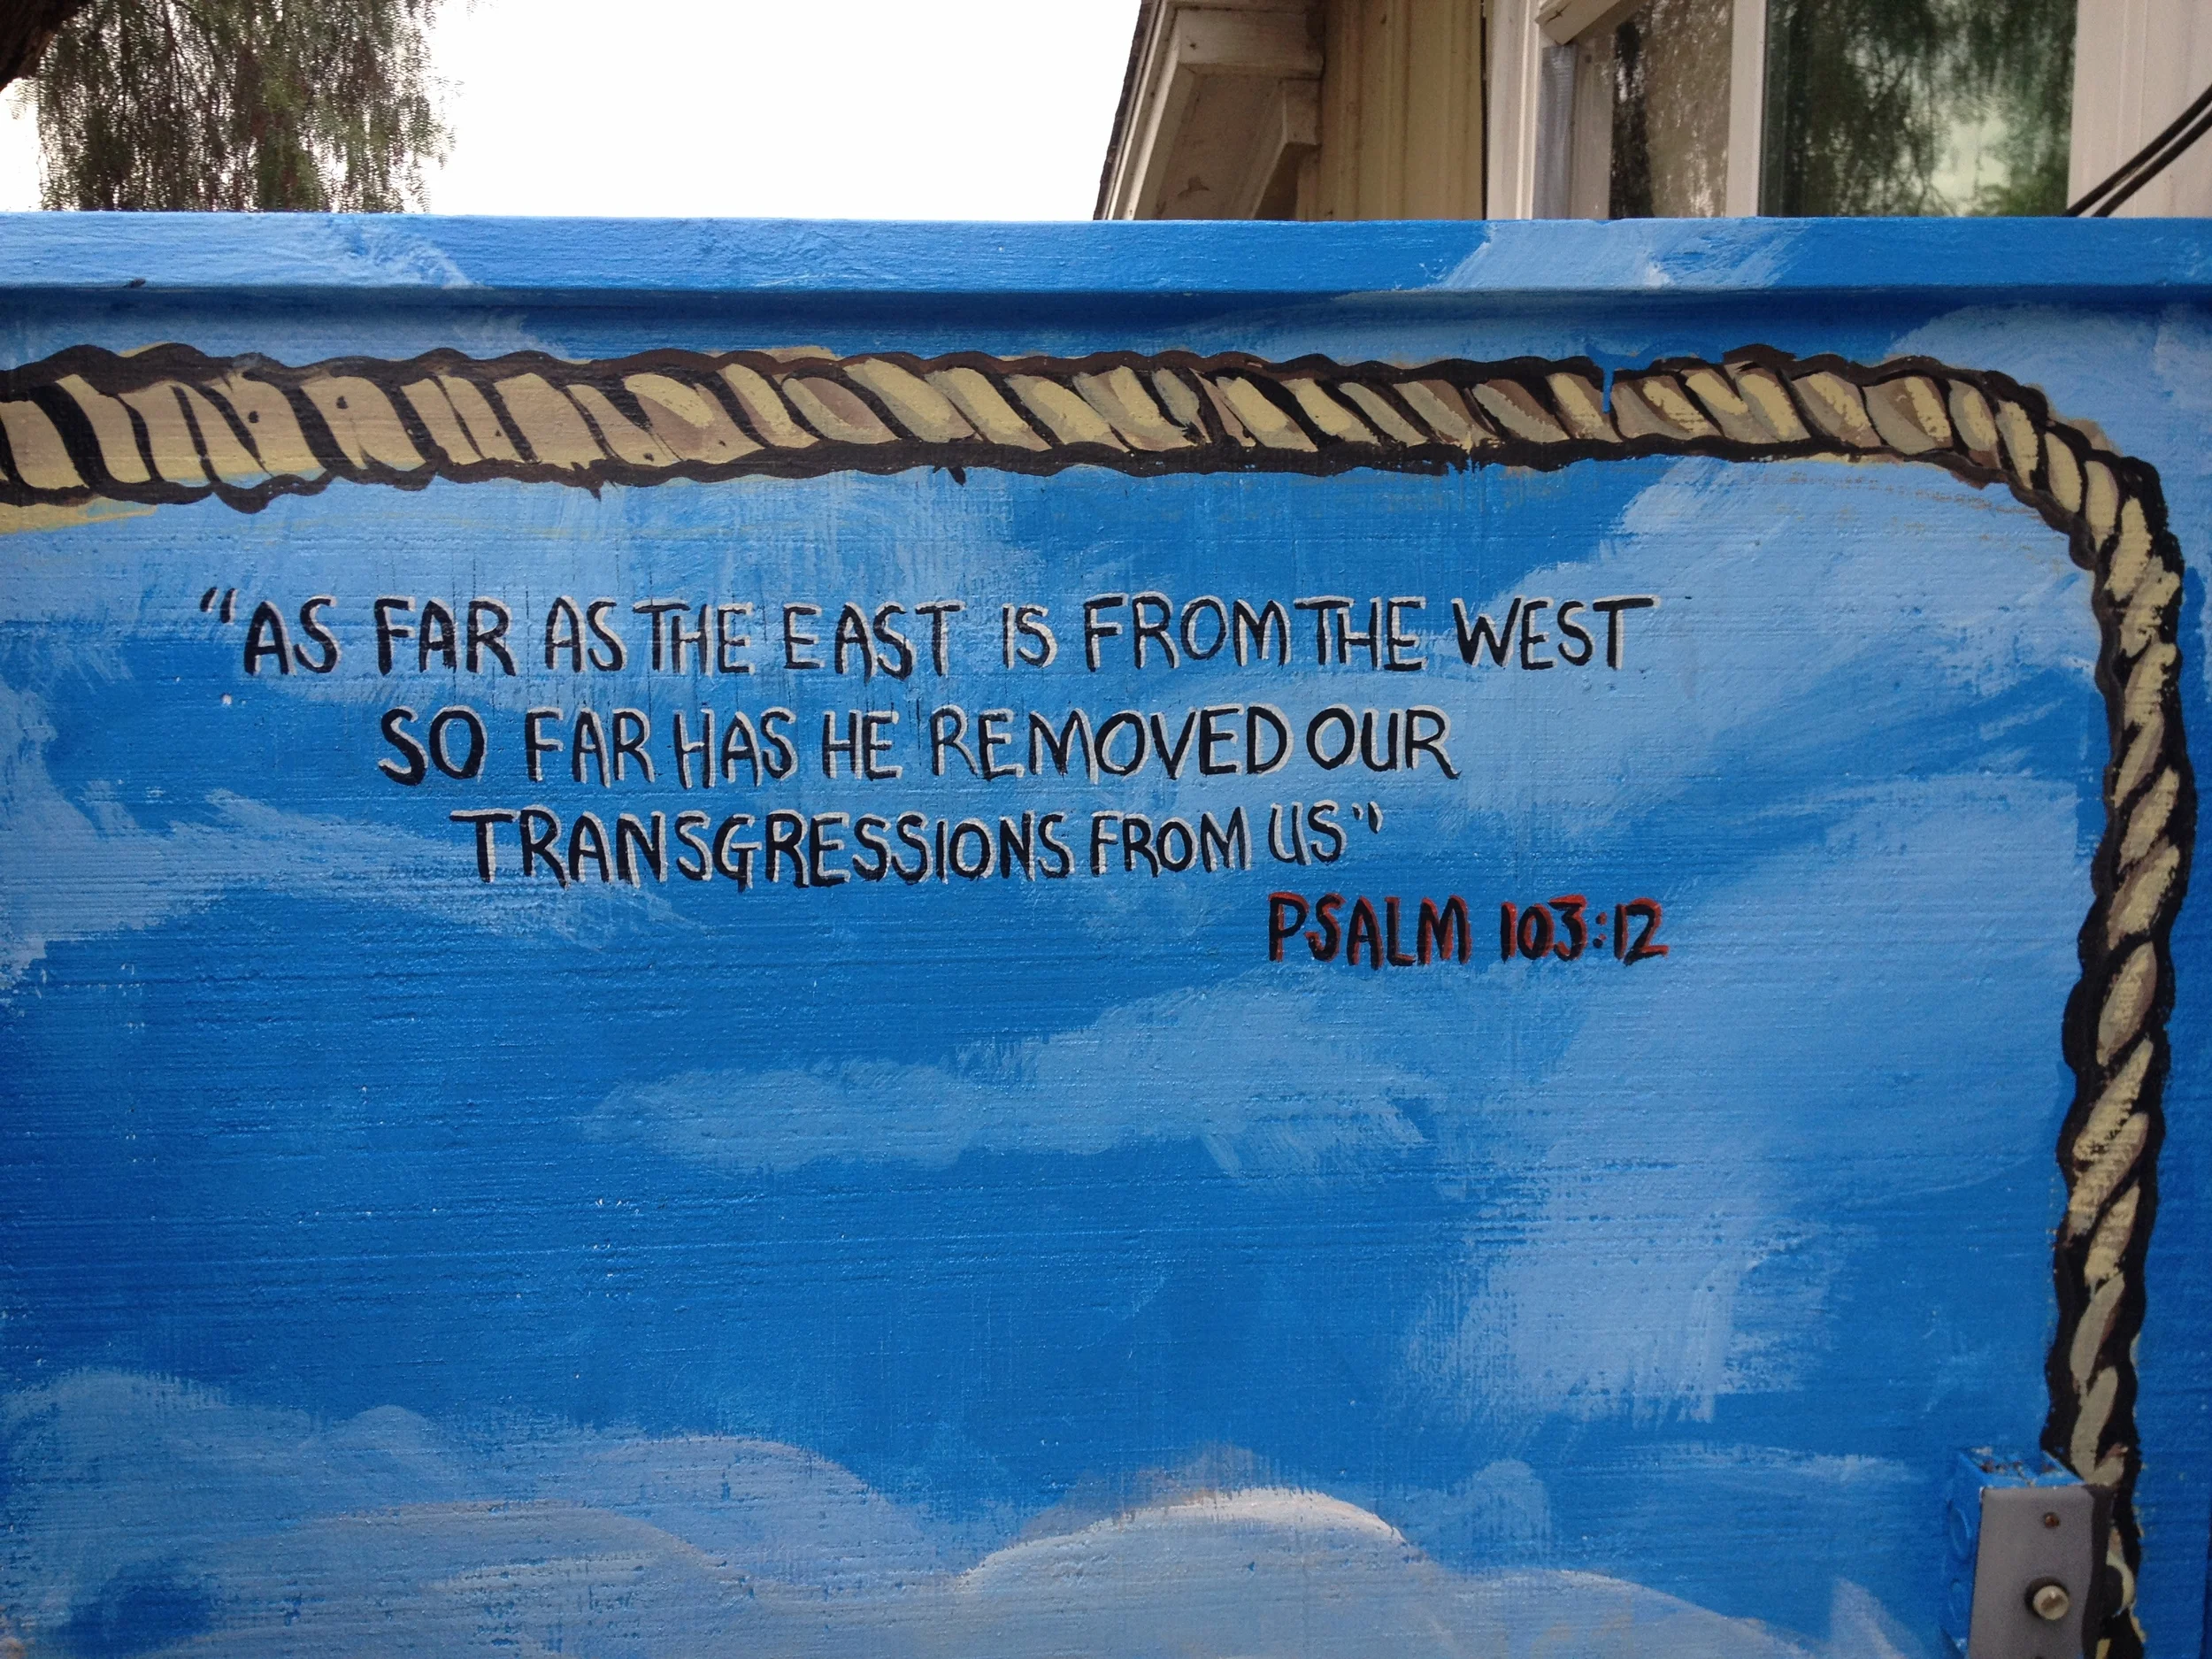 "AS FAR AS THE EAST IS FROM THE WEST
SO FAR HAS HE REMOVED OUR
TRANSGRESSIONS FROM US"
PSALM 103:12